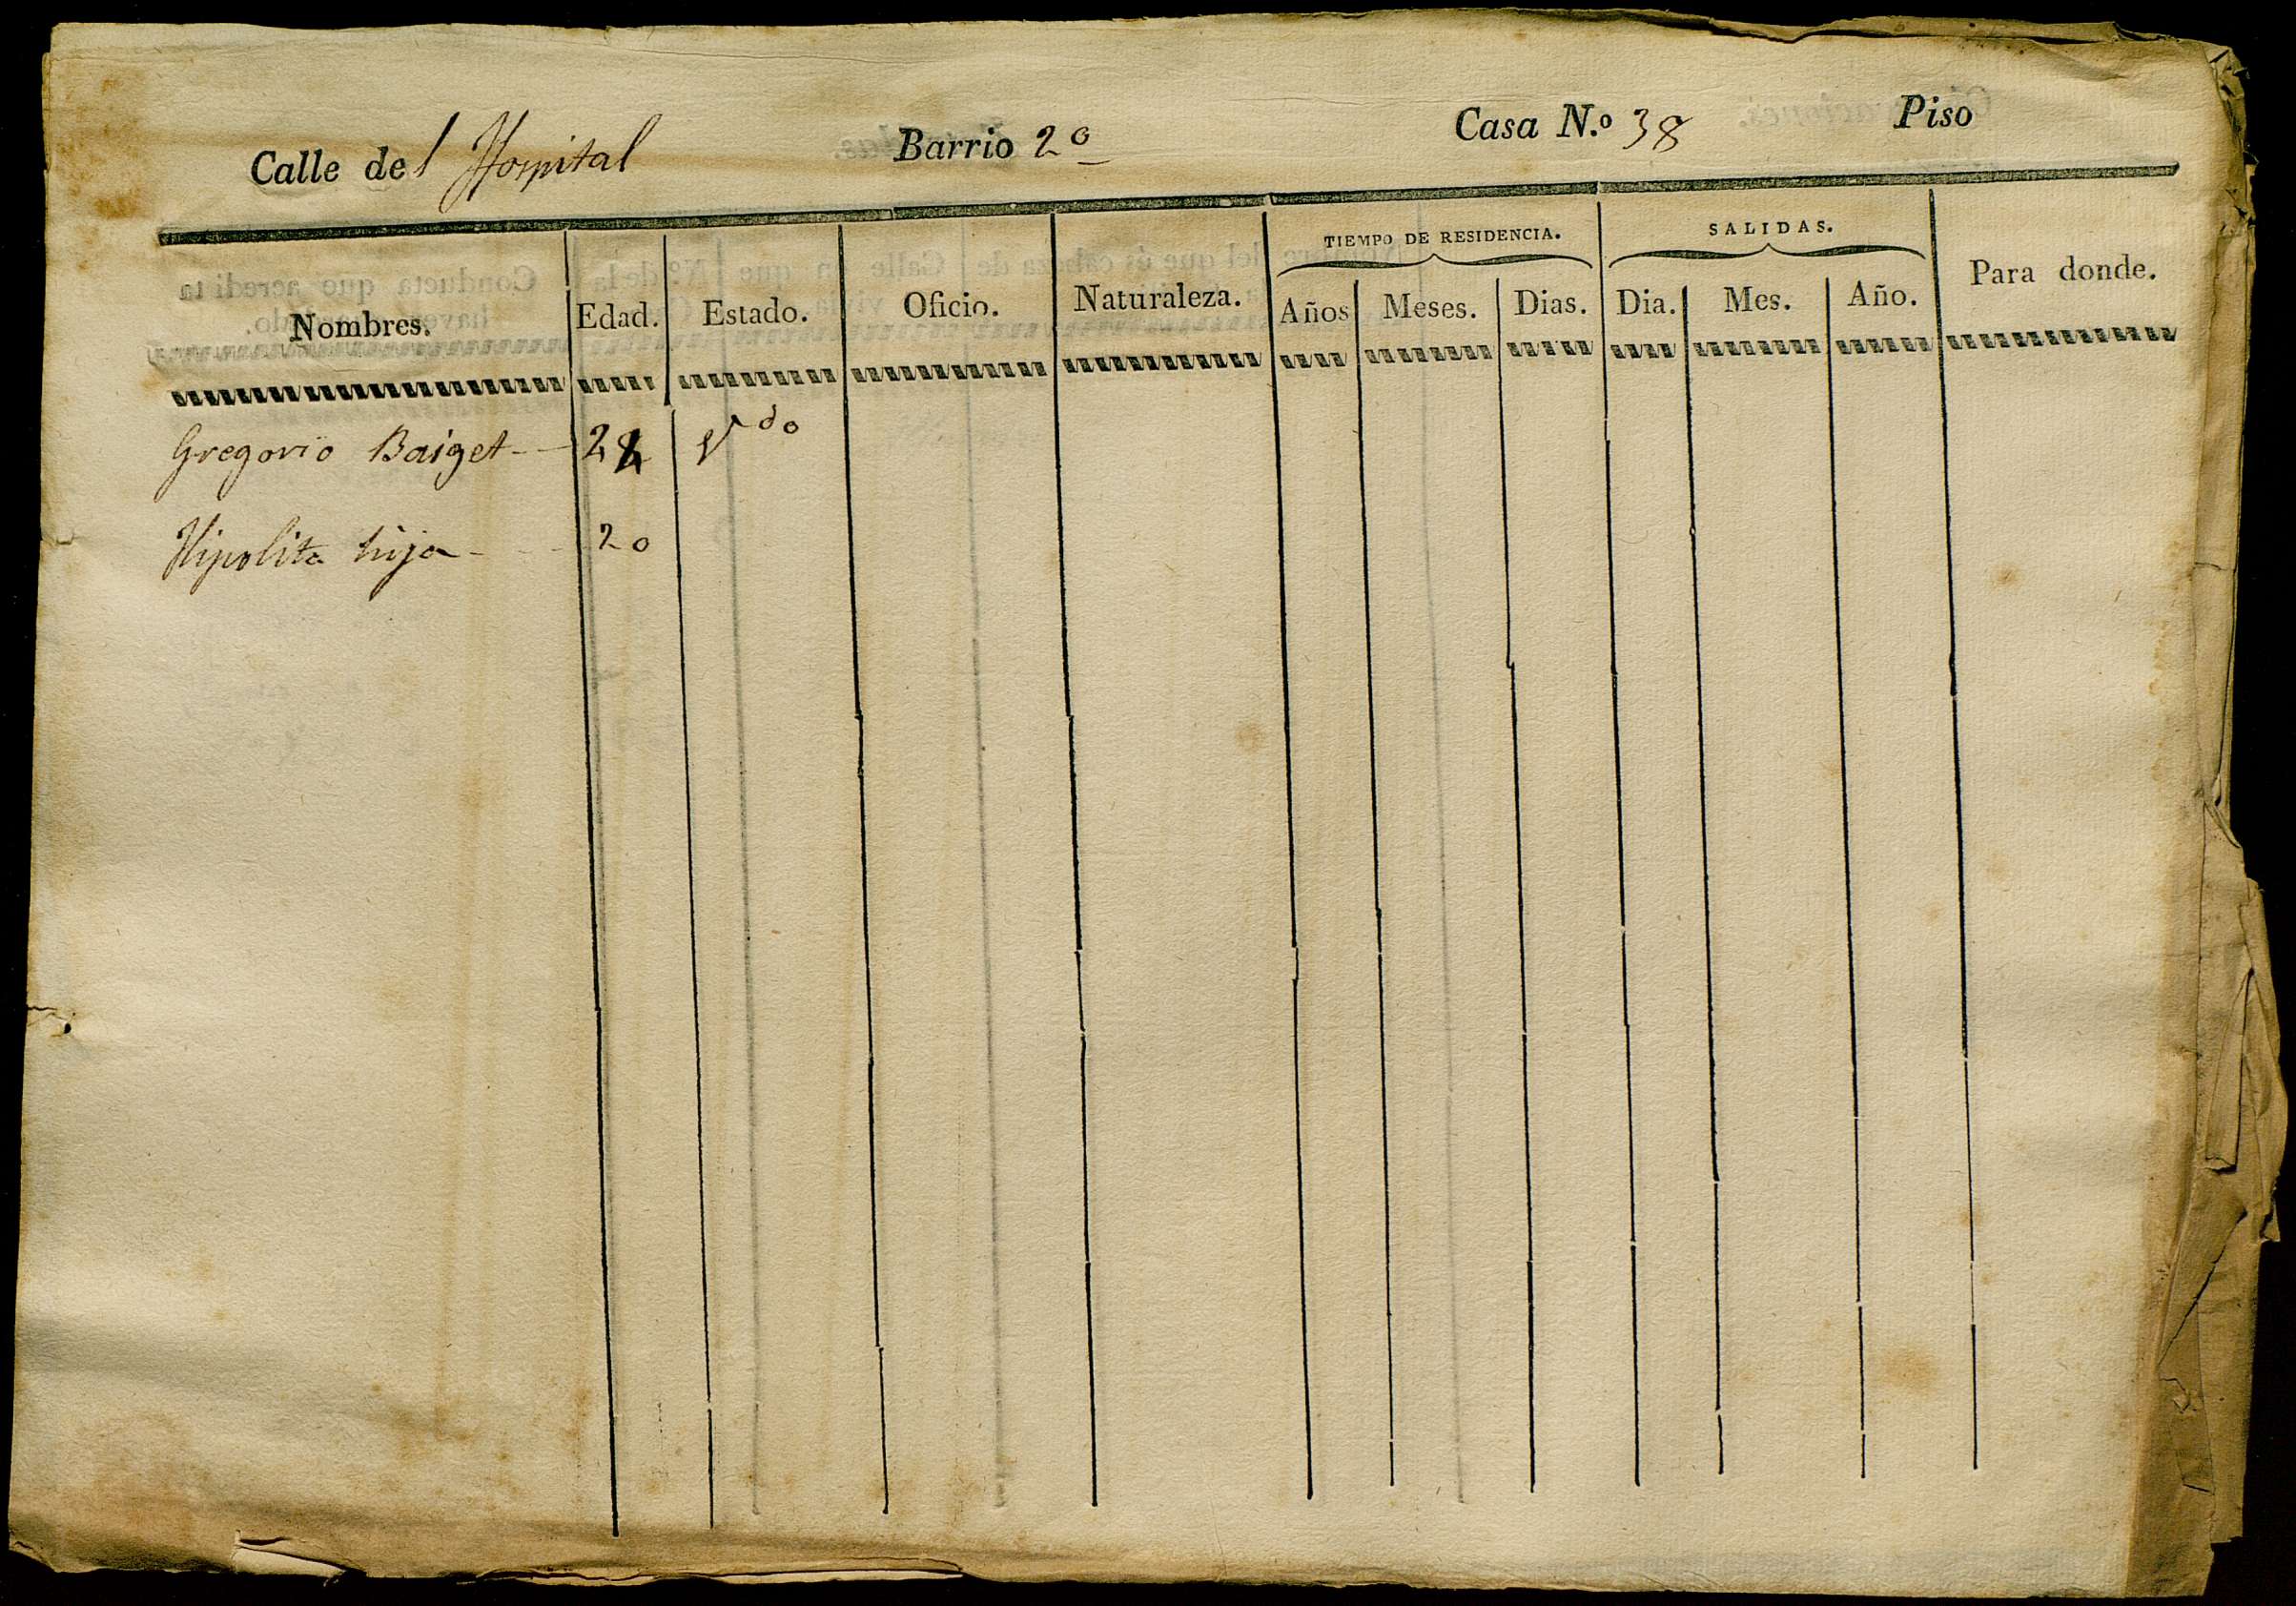 Calle del Hospital Barrio 2º Casa N.º 38 Piso
TIEMPO DE RESIDENCIA. SALIDAS.
Nombres. Edad. Estado. Oficio. Naturaleza. Años Meses. Dias. Dia. Mes. Año. Para donde.
Gregorio Baiget -- Vdo
Hipolita hija - - - 20